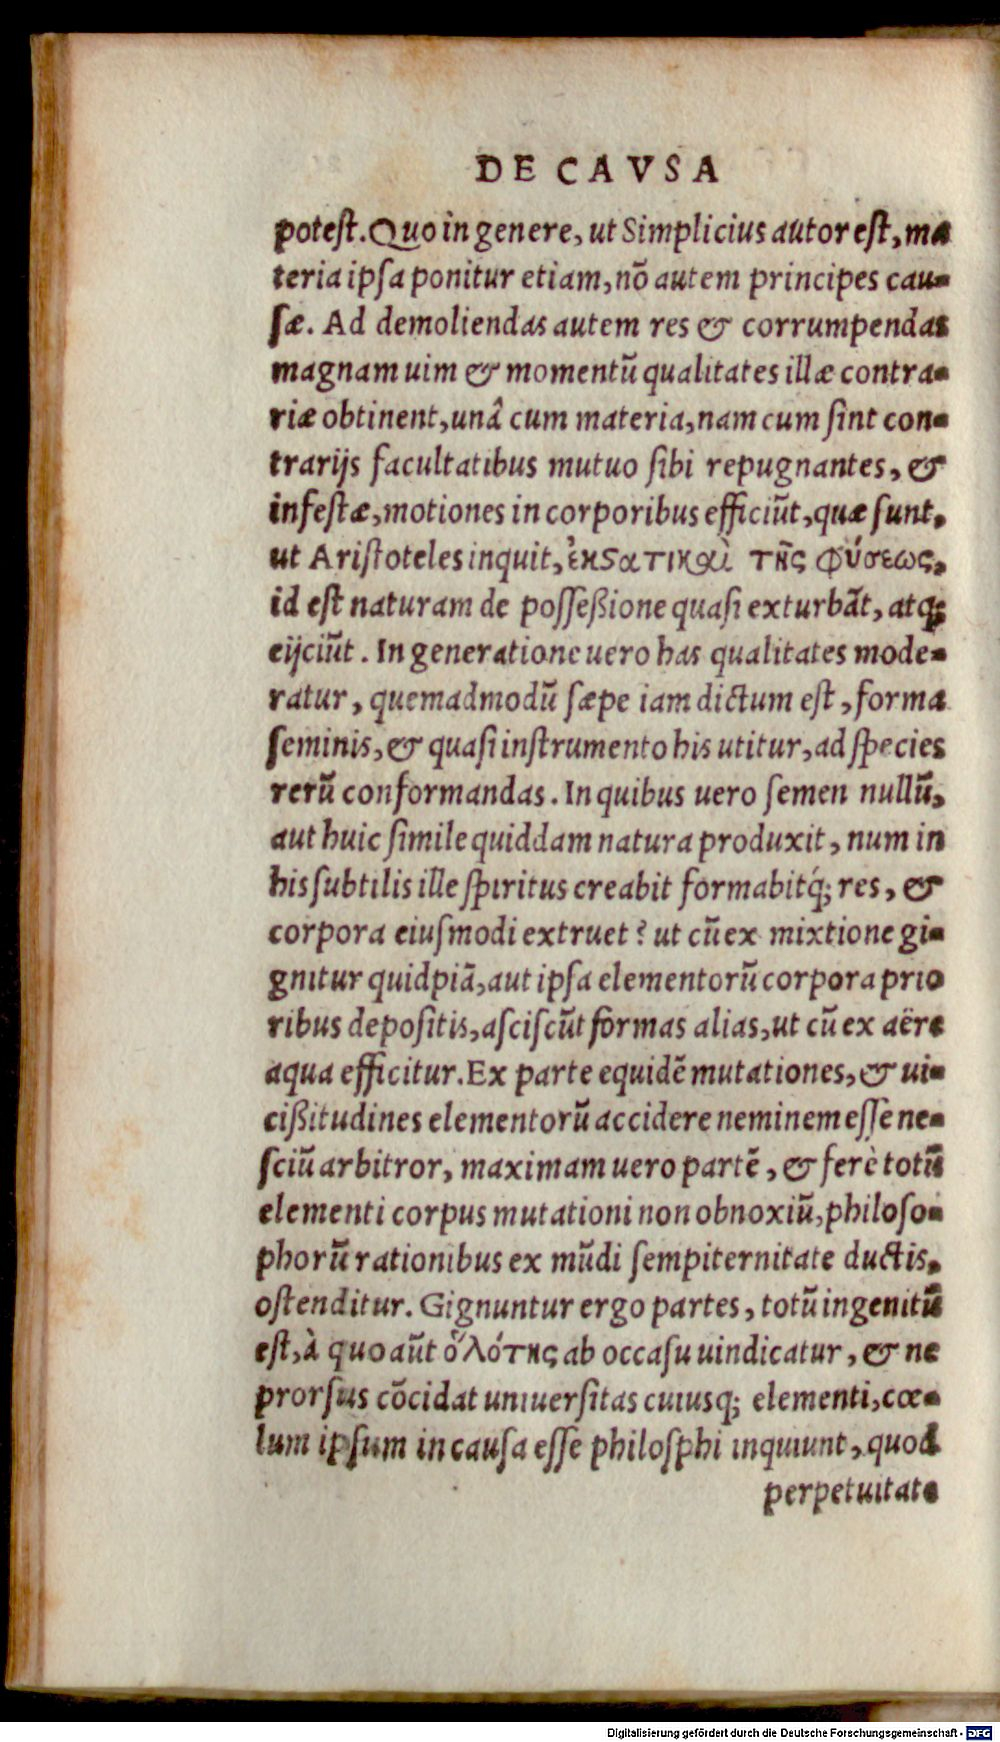 DE CAVSA
potest. Quo in genere, ut Simplicius autor est, ma
teria ipsa ponitur etiam, nō autem principes cau-
sæ. Ad demoliendas autem res & corrumpendas
magnam uim & momentũ qualitates illæ contra-
riæ obtinent, unâ cum materia, nam cum sint con-
trarijs facultatibus mutuo sibi repugnantes, &
infestæ, motiones in corporibus efficiũt, quæ sunt,
ut Aristoteles inquit, ἐκστατικαὶ τῆς φύσεως,
id est naturam de posseßione quasi exturbãt, atq;
eijciũt. In generatione uero has qualitates mode-
ratur, quemadmodũ sæpe iam dictum est, forma
seminis, & quasi instrumento his utitur, ad species
rerũ conformandas. In quibus uero semen nullũ,
aut huic simile quiddam natura produxit, num in
his subtilis ille spiritus creabit formabitq́; res, &
corpora eiusmodi extruet? ut cũ ex mixtione gi-
gnitur quidpiã, aut ipsa elementorũ corpora prio
ribus depositis, asciscũt formas alias, ut cũ ex aëre
aqua efficitur. Ex parte equidẽ mutationes, & ui-
cißitudines elementorũ accidere neminem esse ne-
sciũ arbitror, maximam uero partẽ, & ferè totũ
elementi corpus mutationi non obnoxiũ, philoso-
phorũ rationibus ex mũdi sempiternitate ductis,
ostenditur. Gignuntur ergo partes, totũ ingenitũ
est, à quo aũt ὁλότης ab occasu uindicatur, & ne
prorsus cōcidat uniuersitas cuiusq; elementi, cœ-
lum ipsum in causa esse philosphi inquiunt, quod
perpetuitate
Digitalisierung gefördert durch die Deutsche Forschungsgemeinschaft - DFG